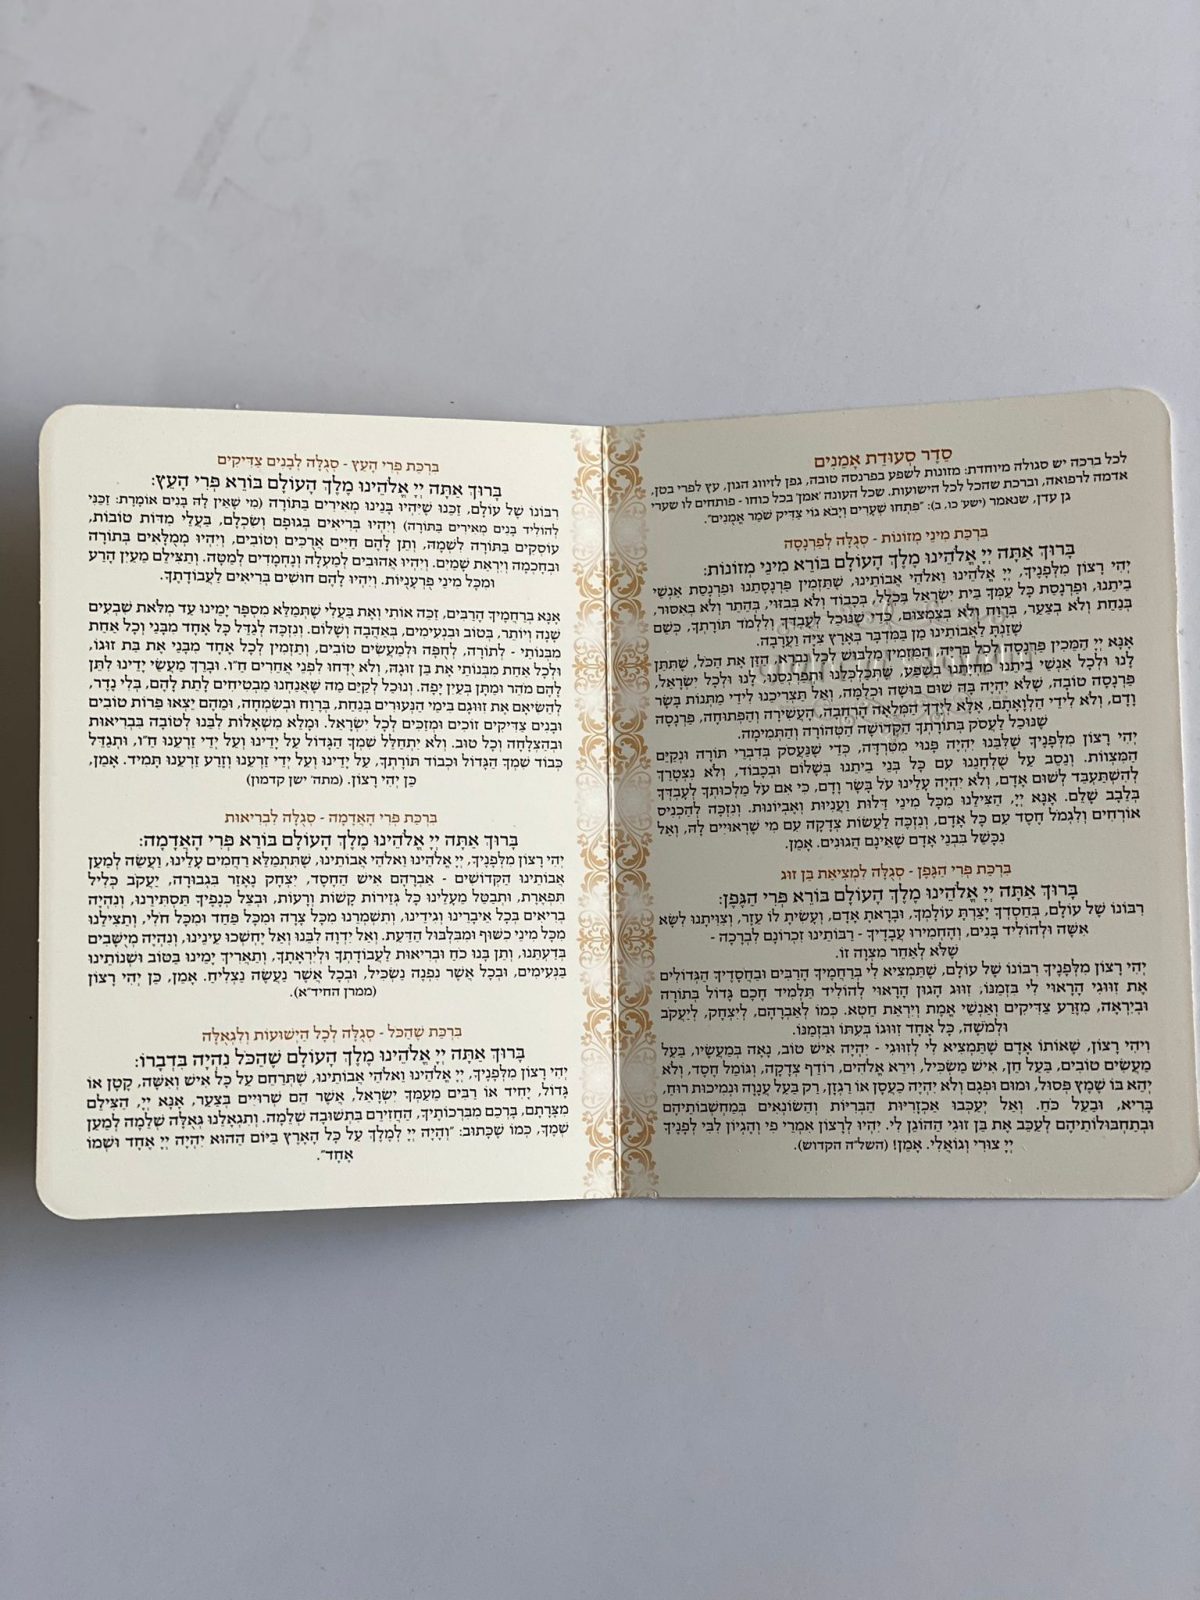 סֵדֶר סְעוּדַת אֲמֵנִים
לכל ברכה יש סגולה מיוחדת: מזונות לשפע בפרנסה טובה, גפן לזיווג הגון, עץ לפרי בטן,
אדמה לרפואה, וברכת שהכל לכל הישועות. שכל העונה 'אמן' בכל כוחו - פותחים לו שערי
גן עדן, שנאמר (ישע' כו, ב): "פִּתְחוּ שְׁעָרִים וְיָבֹא גוֹי צַדִּיק שֹׁמֵר אֱמֻנִים".
בִּרְכַּת מִינֵי מְזוֹנוֹת - סְגֻלָּה לְפַרְנָסָה
בָּרוּךְ אַתָּה יְיָ אֱלֹהֵינוּ מֶלֶךְ הָעוֹלָם בּוֹרֵא מִינֵי מְזוֹנוֹת:
יְהִי רָצוֹן מִלְּפָנֶיךָ, יְיָ אֱלֹהֵינוּ וֵאלֹהֵי אֲבוֹתֵינוּ, שֶׁתַּזְמִין פַּרְנָסָתֵנוּ וּפַרְנָסַת אַנְשֵׁי
בֵיתֵנוּ, וּפַרְנָסַת כָּל עַמְּךָ בֵּית יִשְׂרָאֵל בִּכְלָל, בְּכָבוֹד וְלֹא בְּבִזּוּי, בְּהֶתֵּר וְלֹא בְּאִסּוּר,
בְּנַחַת וְלֹא בְּצַעַר, בְּרֶוַח וְלֹא בְּצִמְצוּם, כְּדֵי שֶׁנּוּכַל לְעָבְדְּךָ וְלִלְמֹד תּוֹרָתְךָ, כְּשֵׁם
שֶׁזַּנְתָּ לַאֲבוֹתֵינוּ מָן בַּמִּדְבָּר בְּאֶרֶץ צִיָּה וַעֲרָבָה.
אָנָּא יְיָ הַמֵּכִין פַּרְנָסָה לְכָל בְּרִיָּה, הַמַּזְמִין מַלְבּוּשׁ לְכָל נִבְרָא, הַזָּן אֶת הַכֹּל, שֶׁתִּתֵּן
לָנוּ וּלְכָל אַנְשֵׁי בֵיתֵנוּ מִחְיָתֵנוּ בְּשֶׁפַע, שֶׁתְּכַלְכְּלֵנוּ וּתְפַרְנְסֵנוּ, לָנוּ וּלְכָל יִשְׂרָאֵל,
פַּרְנָסָה טוֹבָה, שֶׁלֹּא יִהְיֶה בָּהּ שׁוּם בּוּשָׁה וּכְלִמָּה, וְאַל תַּצְרִיכֵנוּ לִידֵי מַתְּנוֹת בָּשָׂר
וָדָם, וְלֹא לִידֵי הַלְוָאָתָם, אֶלָּא לְיָדְךָ הַמְּלֵאָה הָרְחָבָה, הָעֲשִׁירָה וְהַפְּתוּחָה, פַּרְנָסָה
שֶׁנּוּכַל לַעֲסֹק בְּתוֹרָתְךָ הַקְּדוֹשָׁה הַטְּהוֹרָה וְהַתְּמִימָה.
יְהִי רָצוֹן מִלְּפָנֶיךָ שֶׁלִּבֵּנוּ יִהְיֶה פָּנוּי מִטִּרְדָּה, כְּדֵי שֶׁנַּעֲסֹק בְּדִבְרֵי תוֹרָה וּנְקַיֵּם
הַמִּצְווֹת. וְנֵסֵב עַל שֻׁלְחָנֵנוּ עִם כָּל בְּנֵי בֵיתֵנוּ בְּשָׁלוֹם וּבְכָבוֹד, וְלֹא נִצְטָרֵךְ
לְהִשְׁתַּעְבֵּד לְשׁוּם אָדָם, וְלֹא יִהְיֶה עָלֵינוּ עֹל בָּשָׂר וָדָם, כִּי אִם עֹל מַלְכוּתְךָ לְעָבְדְּךָ
בְּלֵבָב שָׁלֵם. אָנָּא יְיָ, הַצִּילֵנוּ מִכָּל מִינֵי דַּלּוּת וַעֲנִיּוּת וְאֶבְיוֹנוּת. וְנִזְכֶּה לְהַכְנִיס
אוֹרְחִים וְלִגְמֹל חֶסֶד עִם כָּל אָדָם, וְנִזְכֶּה לַעֲשׂוֹת צְדָקָה עִם מִי שֶׁרְאוּיִים לָהּ, וְאַל
נִכָּשֵׁל בִּבְנֵי אָדָם שֶׁאֵינָם הֲגוּנִים. אָמֵן.
בִּרְכַּת פְּרִי הַגָּפֶן - סְגֻלָּה לִמְצִיאַת בֶּן זוּג
בָּרוּךְ אַתָּה יְיָ אֱלֹהֵינוּ מֶלֶךְ הָעוֹלָם בּוֹרֵא פְּרִי הַגָּפֶן:
רִבּוֹנוֹ שֶׁל עוֹלָם, בְּחַסְדְּךָ יָצַרְתָּ עוֹלָמְךָ, וּבָרָאתָ אָדָם, וְעָשִׂיתָ לוֹ עֵזֶר, וְצִוִּיתָנוּ לִשָּׂא
אִשָּׁה וּלְהוֹלִיד בָּנִים, וְהֶחְמִירוּ עֲבָדֶיךָ - רַבּוֹתֵינוּ זִכְרוֹנָם לִבְרָכָה -
שֶׁלֹּא לְאַחֵר מִצְוָה זוֹ.
יְהִי רָצוֹן מִלְּפָנֶיךָ רִבּוֹנוֹ שֶׁל עוֹלָם, שֶׁתַּמְצִיא לִי בְּרַחֲמֶיךָ הָרַבִּים וּבַחֲסָדֶיךָ הַגְּדוֹלִים
אֶת זִוּוּגִי הָרָאוּי לִי בִּזְמַנּוֹ; זִוּוּג הָגוּן הָרָאוּי לְהוֹלִיד תַּלְמִיד חָכָם גָּדוֹל בְּתוֹרָה
וּבְיִרְאָה, מִזֶּרַע צַדִּיקִים וְאַנְשֵׁי אֱמֶת וְיִרְאַת חֵטְא. כְּמוֹ לְאַבְרָהָם, לְיִצְחָק, לְיַעֲקֹב
וּלְמֹשֶׁה, כָּל אֶחָד זִוּוּגוֹ בְּעִתּוֹ וּבִזְמַנּוֹ.
וִיהִי רָצוֹן, שֶׁאוֹתוֹ אָדָם שֶׁתַּמְצִיא לִי לְזִוּוּגִי - יִהְיֶה אִישׁ טוֹב, נָאֶה בְּמַעֲשָׂיו, בַּעַל
מַעֲשִׂים טוֹבִים, בַּעַל חֵן, אִישׁ מַשְׂכִּיל, וִירֵא אֱלֹהִים, רוֹדֵף צְדָקָה, וְגוֹמֵל חֶסֶד, וְלֹא
יְהֵא בּוֹ שֶׁמֶץ פְּסוּל, וּמוּם וּפְגָם וְלֹא יִהְיֶה כַעֲסָן אוֹ רַגְזָן, רַק בַּעַל עֲנָוָה וּנְמִיכוּת רוּחַ,
בָּרִיא, וּבַעַל כֹּחַ. וְאַל יְעַכְּבוּ אַכְזָרִיּוּת הַבְּרִיּוֹת וְהַשּׂוֹנְאִים בְּמַחְשְׁבוֹתֵיהֶם
וּבְתַחְבּוּלוֹתֵיהֶם לְעַכֵּב אֶת בֶּן זוּגִי הַהוֹגֵן לִי. יִהְיוּ לְרָצוֹן אִמְרֵי פִי וְהֶגְיוֹן לִבִּי לְפָנֶיךָ
יְיָ צוּרִי וְגוֹאֲלִי. אָמֵן! (השל"ה הקדוש).
בִּרְכַּת פְּרִי הָעֵץ - סְגֻלָּה לְבָנִים צַדִּיקִים
בָּרוּךְ אַתָּה יְיָ אֱלֹהֵינוּ מֶלֶךְ הָעוֹלָם בּוֹרֵא פְּרִי הָעֵץ:
רִבּוֹנוֹ שֶׁל עוֹלָם, זַכֵּנוּ שֶׁיִּהְיוּ בָּנֵינוּ מְאִירִים בַּתּוֹרָה (מִי שֶׁאֵין לָהּ בָּנִים אוֹמֶרֶת: זַכֵּנִי
לְהוֹלִיד בָּנִים מְאִירִים בַּתּוֹרָה) וְיִהְיוּ בְּרִיאִים בְּגוּפָם וְשִׂכְלָם, בַּעֲלֵי מִדּוֹת טוֹבוֹת,
עוֹסְקִים בַּתּוֹרָה לִשְׁמָהּ, וְתֵן לָהֶם חַיִּים אֲרֻכִּים וְטוֹבִים, וְיִהְיוּ מְמֻלָּאִים בְּתוֹרָה
וּבְחָכְמָה וְיִרְאַת שָׁמַיִם. וְיִהְיוּ אֲהוּבִים לְמַעְלָה וְנֶחְמָדִים לְמַטָּה. וְתַצִּילֵם מֵעַיִן הָרַע
וּמִכָּל מִינֵי פֻּרְעָנֻיּוֹת. וְיִהְיוּ לָהֶם חוּשִׁים בְּרִיאִים לַעֲבוֹדָתְךָ.
אָנָּא בְּרַחֲמֶיךָ הָרַבִּים, זַכֵּה אוֹתִי וְאֶת בַּעֲלִי שֶׁתְּמַלֵּא מִסְפַּר יָמֵינוּ עַד מְלֹאת שִׁבְעִים
שָׁנָה וְיוֹתֵר, בְּטוֹב וּבִנְעִימִים, בְּאַהֲבָה וְשָׁלוֹם. וְנִזְכֶּה לְגַדֵּל כָּל אֶחָד מִבָּנַי וְכָל אַחַת
מִבְּנוֹתַי - לְתוֹרָה, לְחֻפָּה וּלְמַעֲשִׂים טוֹבִים, וְתַזְמִין לְכָל אֶחָד מִבָּנַי אֶת בַּת זוּגוֹ,
וּלְכָל אַחַת מִבְּנוֹתַי אֶת בֶּן זוּגָהּ, וְלֹא יִדָּחוּ לִפְנֵי אֲחֵרִים ח"ו. וּבָרֵךְ מַעֲשֵׂי יָדֵינוּ לִתֵּן
לָהֶם מֹהַר וּמַתָּן בְּעַיִן יָפָה. וְנוּכַל לְקַיֵּם מַה שֶּׁאֲנַחְנוּ מַבְטִיחִים לָתֵת לָהֶם, בְּלִי נֶדֶר,
לְהַשִּׂיאָם אֶת זִוּוּגָם בִּימֵי הַנְּעוּרִים בְּנַחַת, בְּרֶוַח וּבְשִׂמְחָה, וּמֵהֶם יָצְאוּ פֵּרוֹת טוֹבִים
וּבָנִים צַדִּיקִים זוֹכִים וּמְזַכִּים לְכָל יִשְׂרָאֵל. וּמַלֵּא מִשְׁאֲלוֹת לִבֵּנוּ לְטוֹבָה בִּבְרִיאוּת
וּבְהַצְלָחָה וְכָל טוּב. וְלֹא יִתְחַלֵּל שִׁמְךָ הַגָּדוֹל עַל יָדֵינוּ וְעַל יְדֵי זַרְעֵנוּ ח"ו, וּתְגַדֵּל
כְּבוֹד שִׁמְךָ הַגָּדוֹל וּכְבוֹד תּוֹרָתְךָ, עַל יָדֵינוּ וְעַל יְדֵי זַרְעֵנוּ וְזֶרַע זַרְעֵנוּ תָּמִיד. אָמֵן,
כֵּן יְהִי רָצוֹן. (מתה' ישן קדמון)
בִּרְכַּת פְּרִי הָאֲדָמָה - סְגֻלָּה לִבְרִיאוּת
בָּרוּךְ אַתָּה יְיָ אֱלֹהֵינוּ מֶלֶךְ הָעוֹלָם בּוֹרֵא פְּרִי הָאֲדָמָה:
יְהִי רָצוֹן מִלְּפָנֶיךָ, יְיָ אֱלֹהֵינוּ וֵאלֹהֵי אֲבוֹתֵינוּ, שֶׁתִּתְמַלֵּא רַחֲמִים עָלֵינוּ, וַעֲשֵׂה לְמַעַן
אֲבוֹתֵינוּ הַקְּדוֹשִׁים - אַבְרָהָם אִישׁ הַחֶסֶד, יִצְחָק נֶאְזָר בִּגְבוּרָה, יַעֲקֹב כְּלִיל
תִּפְאֶרֶת, וּתְבַטֵּל מֵעָלֵינוּ כָּל גְּזֵרוֹת קָשׁוֹת וְרָעוֹת, וּבְצֵל כְּנָפֶיךָ תַּסְתִּירֵנוּ, וְנִהְיֶה
בְּרִיאִים בְּכָל אֵיבָרֵינוּ וְגִידֵינוּ, וְתִשְׁמְרֵנוּ מִכָּל צָרָה וּמִכָּל פַּחַד וּמִכָּל חֹלִי, וְתַצִּילֵנוּ
מִכָּל מִינֵי כִּשּׁוּף וּמִבִּלְבּוּל הַדַּעַת. וְאַל יִדְוֶה לִבֵּנוּ וְאַל יֶחְשְׁכוּ עֵינֵינוּ, וְנִהְיֶה מְיֻשָּׁבִים
בְּדַעְתֵּנוּ, וְתֵן בָּנוּ כֹּחַ וּבְרִיאוּת לַעֲבוֹדָתְךָ וּלְיִרְאָתְךָ, וְתַאֲרִיךְ יָמֵינוּ בַּטּוֹב וּשְׁנוֹתֵינוּ
בַּנְּעִימִים, וּבְכָל אֲשֶׁר נִפְנֶה נַשְׂכִּיל, וּבְכָל אֲשֶׁר נַעֲשֶׂה נַצְלִיחַ. אָמֵן, כֵּן יְהִי רָצוֹן
(ממרן החיד"א).
בִּרְכַּת שֶׁהַכֹּל - סְגֻלָּה לְכָל הַיְשׁוּעוֹת וְלִגְאֻלָּה
בָּרוּךְ אַתָּה יְיָ אֱלֹהֵינוּ מֶלֶךְ הָעוֹלָם שֶׁהַכֹּל נִהְיָה בִּדְבָרוֹ:
יְהִי רָצוֹן מִלְּפָנֶיךָ, יְיָ אֱלֹהֵינוּ וֵאלֹהֵי אֲבוֹתֵינוּ, שֶׁתְּרַחֵם עַל כָּל אִישׁ וְאִשָּׁה, קָטָן אוֹ
גָּדוֹל, יָחִיד אוֹ רַבִּים מֵעַמְּךָ יִשְׂרָאֵל, אֲשֶׁר הֵם שְׁרוּיִים בְּצַעַר, אָנָּא יְיָ, הַצִּילֵם
מִצָּרָתָם, בָּרְכֵם מִבִּרְכוֹתֶיךָ, הַחֲזִירֵם בִּתְשׁוּבָה שְׁלֵמָה. וְתִגְאָלֵנוּ גְּאֻלָּה שְׁלֵמָה לְמַעַן
שְׁמֶךָ, כְּמוֹ שֶׁכָּתוּב: "וְהָיָה יְיָ לְמֶלֶךְ עַל כָּל הָאָרֶץ בַּיּוֹם הַהוּא יִהְיֶה יְיָ אֶחָד וּשְׁמוֹ
אֶחָד".